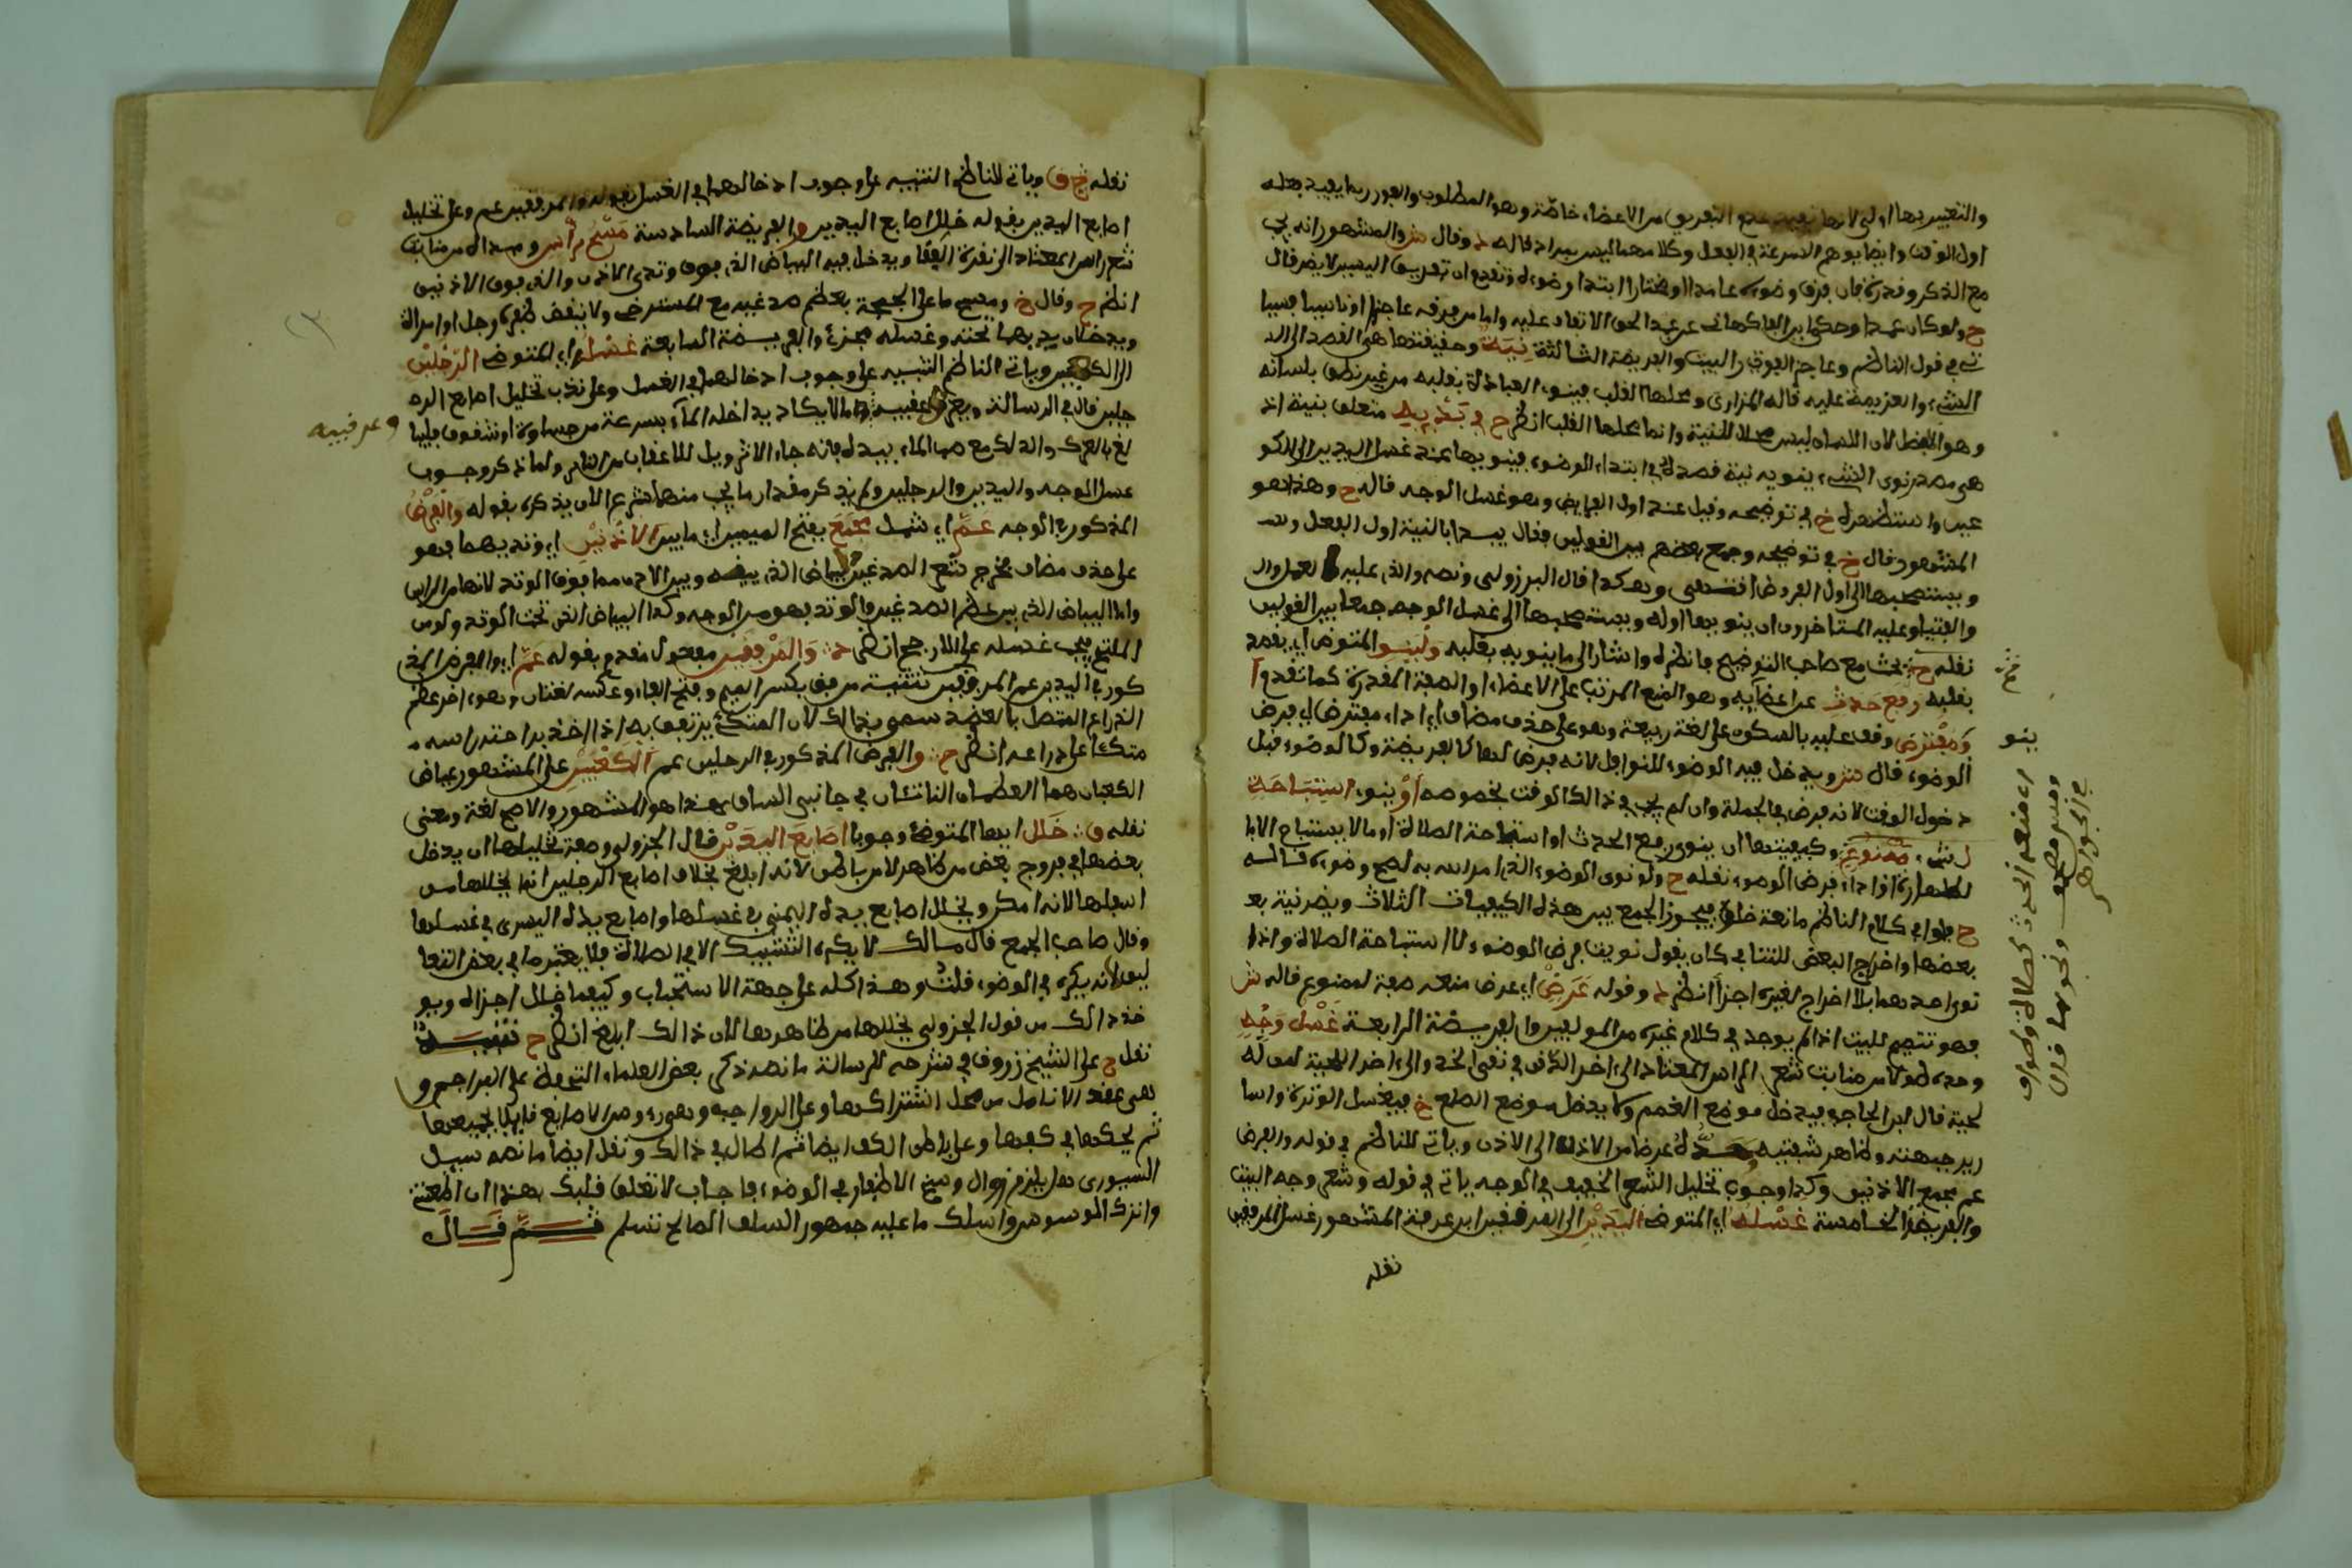 والتعبير بها اولى لانها تفيد عدم التفريق من الاعضاء خاصّة وهو المطلوب والفور ربما يفيد فعله
اول الوقت وايضا يوهم السرعة في الفعل وكلاهما ليس بمراد قاله وقال ش والمشهور انه يجب
مع الذكر وقدرة فان فرق وضوءه عامدا او مختارا ابتدا وضوءه وتقدم ان تفريق اليسير لا يضر قال
ح ولو كان عمدا وحكى ابن الفاكهاني عن عبد الحق الاتفاق عليه واما من فرقه عاجزا او ناسيا فسيا
تي في قول الناظم وعاجز الفور البيت والفريضة الثالثة نِيَة وحقيقتها هي القصد الى
الشيء والعزيمة عليه قاله المازري ومحلها القلب فينوي العبادة بقلبه من غير نطق بلسانه
وهو افضل لان اللسان ليس محلا للنية وانما محلها القلب انظر ح في بَدْئِه متعلق بنية اذ
هي مصدر نوى الشيء ينويه نية قصده اي في ابتداء الوضوء فينويها عند غسل اليدين الى الكو
عين واستظهره خ في توضيحه وقيل عند اول الفرايض وهو غسل الوجه قاله ح وهذا هو
المشهور قال خ في توضيحه وجمع بعضهم بين القولين فقال يبدا بالنية اول الفعل و
يستصحبها الى اول الفروض انتهى وهكذا قال الجزولي ونصه والذي عليه العمل و
الفتيا وعليه المتاخرون ان ينويها اوله ويستصحبها الى غسل الوجه جمعا بين القولين
نقله ح بحث مع صاحب التوضيح فانظره واشار الى ما ينويه بقلبه وَلْيَنْوِ المتوضي اي يقصد
بقلبه رفع حَدَثٍ عن اعضايه وهو المنع المرتب على الاعضاء او الصفة المقدرة كما تقدم أ
وْ مُفْتَرَض وقف عليه بالسكون على لغة ربيعة وهو على حذف مضاف اي اداء مفترض اي فرض
الوضوء قال ش ويدخل فيه الوضوء للنوافل لانه فرض لها كالفريضة وكالوضوء قبل
دخول الوقت لانه فرض في الجملة وان لم يجب في ذالك الوقت بخصوصه أوْ ينوي استِبَاحَةً
لشيء مَمْنُوعٍ وكيفيتها ان ينوي رفع الحدث او استباحة الصلاة او ما لا يستباح الا با
لطهارة او اداء فرض الوضوء نقله ح ولو نوى الوضوء الذي امر الله به لصح وضوءه قاله
ح فاو في كلام الناظم مانعة خلو فيجوز الجمع بين هذه الكيفيات الثلاث ويضر نية بعـ
بعضها واخراج البعض للتنافي كان يقول نويت فرض الوضوء لا استباحة الصلاة واذا
نوى احدهما بلا اخراج لغيره اجزأ انظر وقوله عَرَضْ اي عرض منعه صفة لممنوع قاله ش
فهو تتميم للبيت اذ لم يوجد في كلام غيره من المولفين والفريضة الرابعة غَسْل وَجْهٍ
وحده طولا من منابت شعر الراس المعتاد الى اخر الذقن في نقي الخد والى اخر اللحية لمن له
لحية قال ابن الحاجب فيدخل موضع الغمم ولا يدخل موضع الصلع خ فيغسل الوترة واسا
رير جبهته وظاهر شفتيه وحده عرضا من الاذن الى الاذن وياتي للناظم في قوله والفرض
عم مجمع الاذنين وكذا وجوب تخليل الشعر الخفيف في الوجه ياتي في قوله وشعر وجه البيت
والفريضة الخامسة غَسْلُهُ اي المتوضي اليَدَيْنِ الى المرفقين ابن عرفة المشهور غسل المرفقين
نقله
ينو
نقله خ ق وياتي للناظم التنبيه على وجوب ادخالهما في الغسل بقوله والمرفقين عم وعلى تخليل
اصابع اليدين بقوله خلل اصابع اليدين والفريضة السادسة مَسْحُ رَأس ومبداه من منابت
شعر راس المعتاد الى نقرة القفا ويدخل فيه البياض الذي فوق وتدي الاذن والذي فوق الاذنين
انظر ح وقال خ ومسح ما على الجمجمة بعظم صدغيه مع المسترخي ولا ينقض ظفره رجل او امراة
ويدخلان يديهما تحته وغسله مجزئ والفريضة السابعة غَسْلُه اي المتوضي الرّجْلَيْنِ
الى الكعبين وياتي الناظم التنبيه على وجوب ادخالهما في الغسل وعلى ندب تخليل اصابع الر
جلين قال في الرسالة ويعرك عقبيه وما لا يكاد يداخله المآء بسرعة من جساوة او شقوق فليبا
وعرقبيه
لغ بالعرك والدلك مع صب الماء بيده فانه جاء الاثر ويل للاعقاب من النار ولما ذكر وجوب
غسل الوجه واليدين والرجلين ولم يذكر مقدار ما يجب منها شرع الان يذكره بقوله والفَرْضُ
المذكور في الوجه عَمَّ اي شمل مَجْمَعَ بفتح الميمين اي ما بين الأُذْنَيْنِ اي وتديهما فهو
على حذف مضاف مخرج شعر الصدغين البياض الذي بينه وبين الاذن مما فوق الوتد لانها من الراس
واما البياض الذي بين عظم الصدغين والوتد فهو من الوجه وكذا البياض الذي تحت الوتد ولو من
الملتحي يجب غسله على الارجح انظر وَالمَرْفِقَيْنِ مفعول مقدم بقوله عَمَّ اي والفرض المذ
كور في اليدين عم المرفقين تثنية مرفق بكسر الميم وفتح الفاء وعكسه لغتان وهو اخر عظم
الذراع المتصل بالعضد سمي بذالك لان المتكئ يرتفق به اذا اخذ براحته راسه
متكئا على ذراعه انظر ح والفرض المذكور في الرجلين عم الكَعْبَيْنِ على المشهور عياض
الكعبان هما العظمان الناتئان في جانبي الساق هذا هو المشهور والاصح لغة ومعنى
نقله ق خَلِّل ايها المتوضئ وجوبا اصَابِعَ اليَدَيْنِ قال الجزولي وصفة تخليلها ان يدخل
بعضها في فروج بعض من ظاهر لا من باطن لانه ابلغ بخلاف اصابع الرجلين انما يخللها من
اسفلها لانه امكن ويخلل اصابع يده اليمنى في غسلها واصابع يده اليسرى في غسلها
وقال صاحب الجمع قال مالك لا يكره التشبيك الا في الصلاة فلا يعتبر ما في بعض التعا
ليق لانه يكره في الوضوء قلتُ وهذا كله على جهة الاستحباب وكيفما خلل اجزاه ويو
خذ ذالك من قول الجزولي يخللها من ظاهرها لان ذالك ابلغ انظر ح تنْبِيـه
نقل ح على الشيخ زروق في شرحه للرسالة ما نصه ذكر بعض العلماء التحفظ على البراجم و
هي عقد الانامل من محل اشتراكها وعلى الرواجب وهي رءوس الاصابع فاولا يجمعها
ثم يحكها في كفها وعلى باطن الكف ايضا ثم اطال في ذالك ونقل ايضا ما نصه سيل
السيوري هل يلزم زوال وسخ الاظفار في الوضوء فاجاب لا تعلق قلبك بهذا ان اطعتني
واترك الوسوسة واسلك ما عليه جمهور السلف الصالح تسلم ثـمَّ قَـالَ